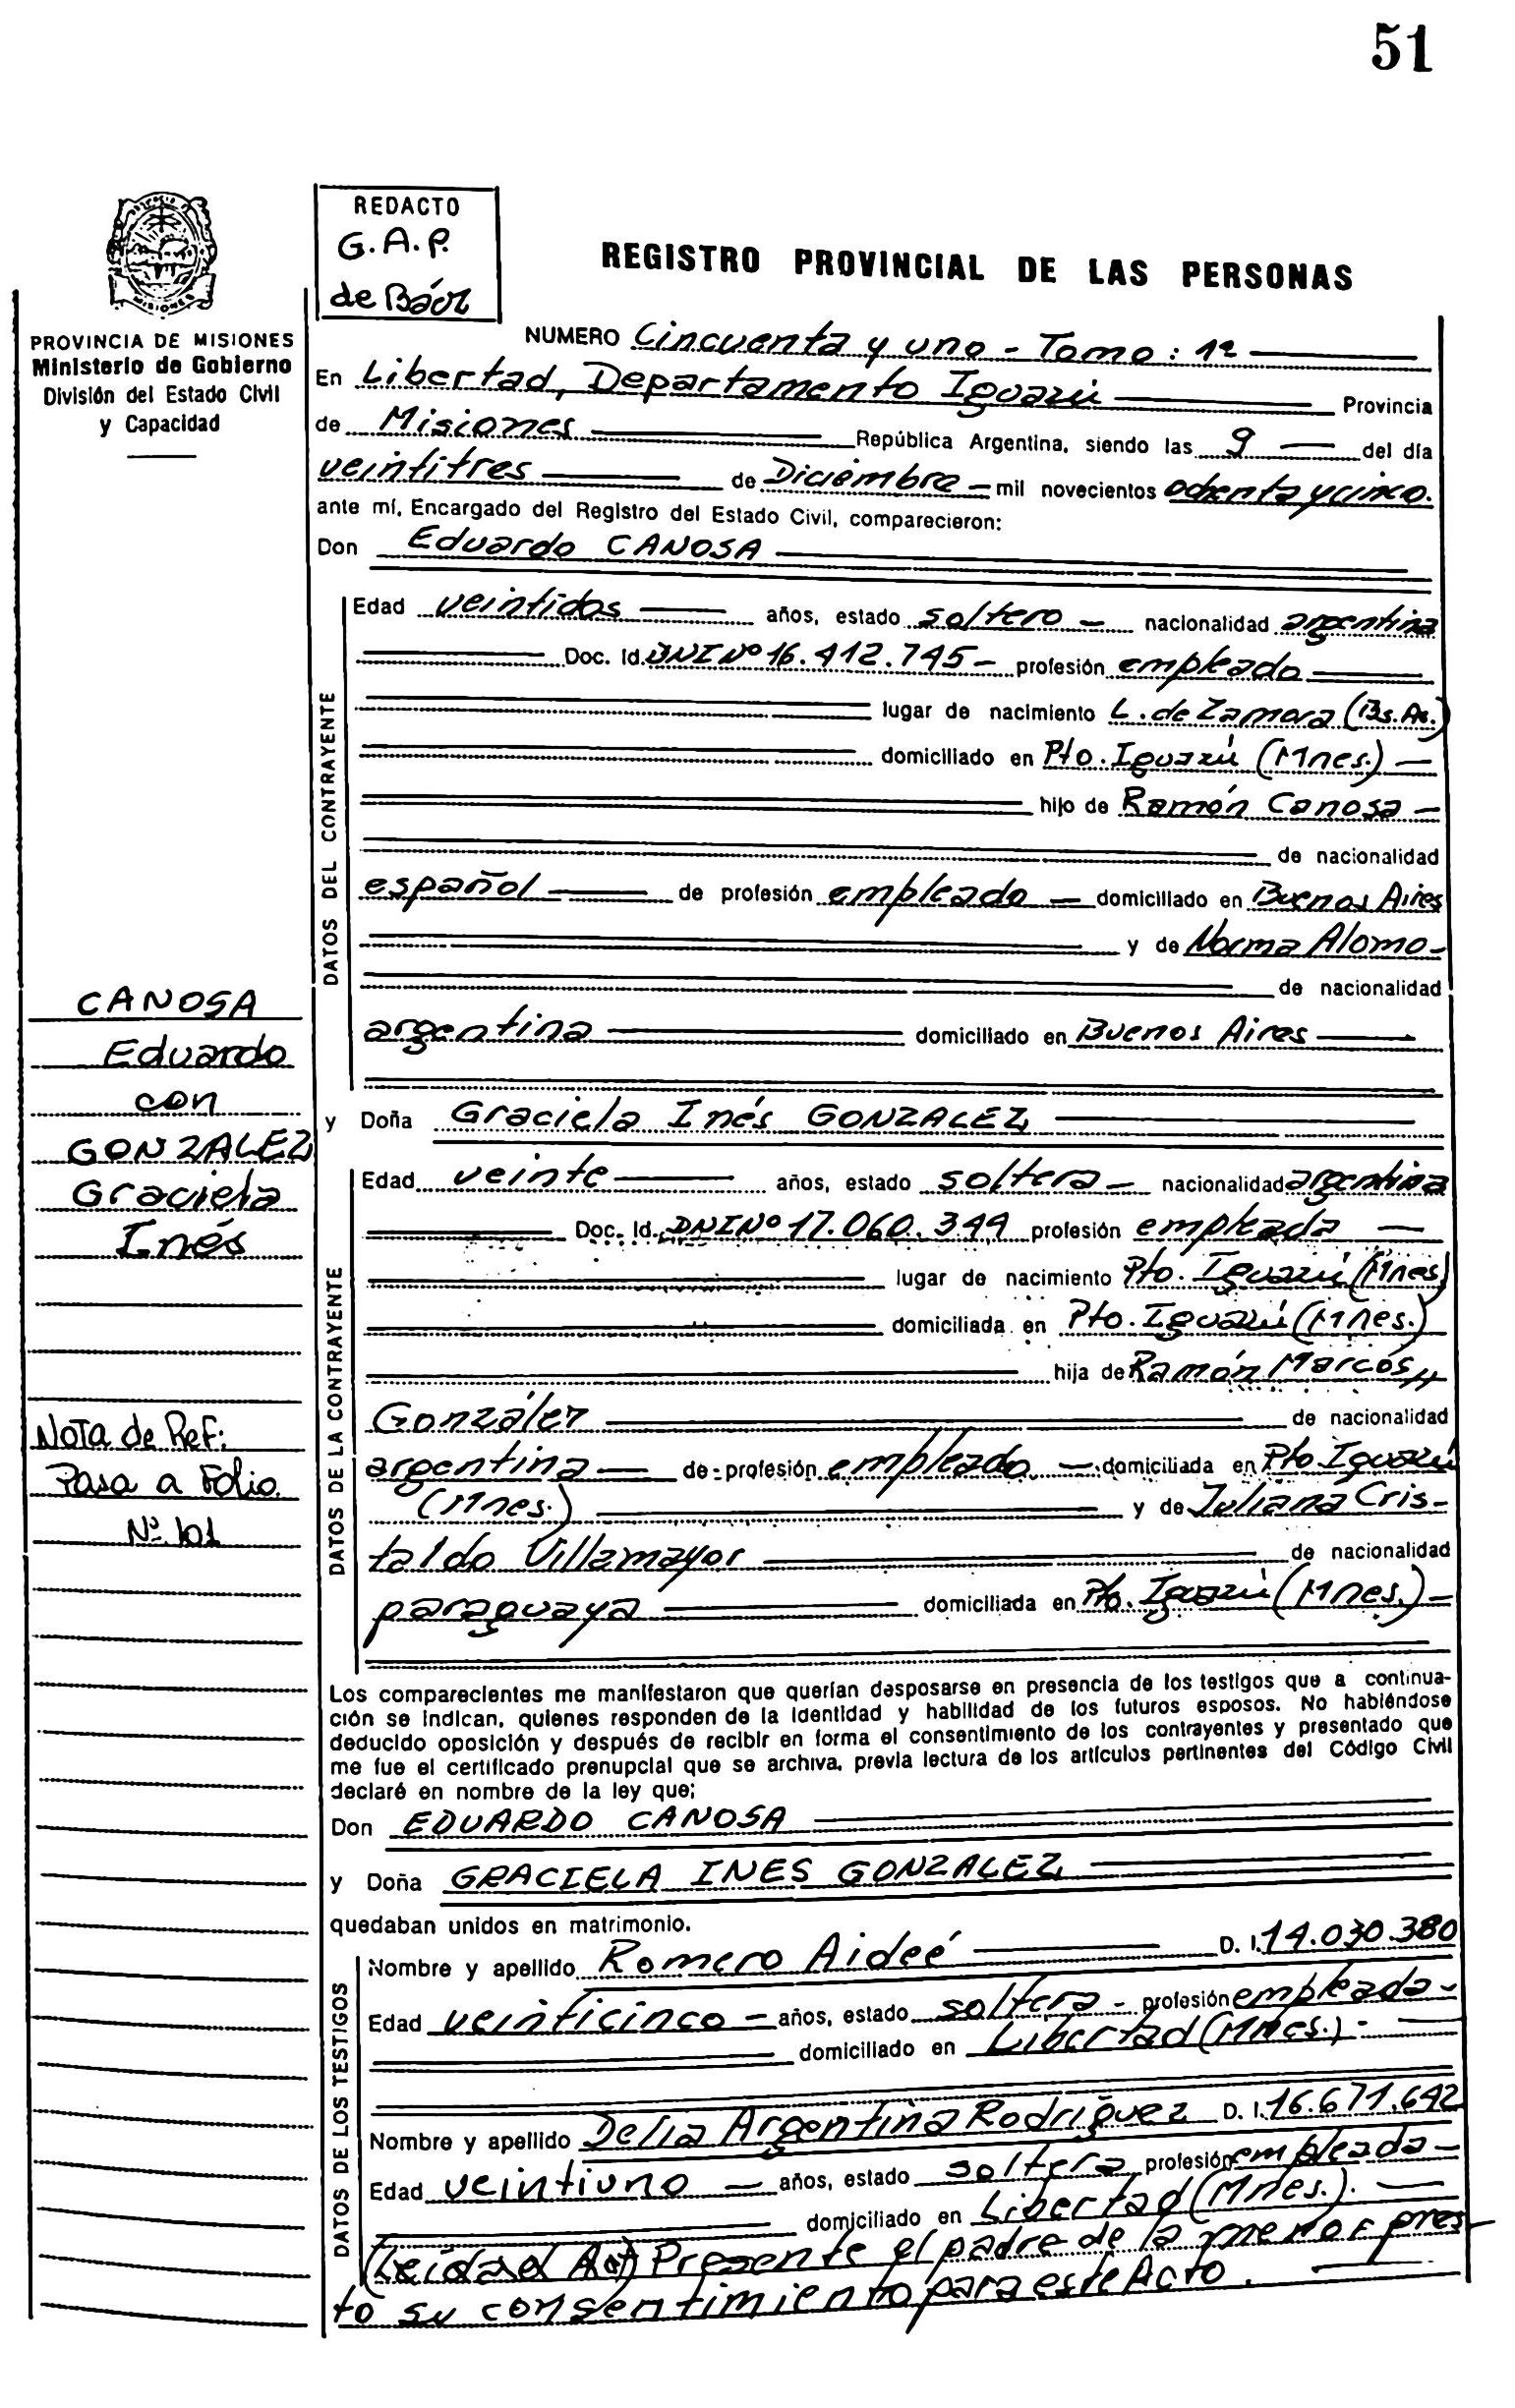 51
REDACTO
G.A.P.
de Báez
REGISTRO PROVINCIAL DE LAS PERSONAS
MISIONES
PROVINCIA DE MISIONES
Ministerio de Gobierno
División del Estado Civil
y Capacidad
NUMERO Cincuenta y uno - Tomo: 1º
En Libertad, Departamento Iguazú Provincia
de Misiones República Argentina, siendo las 9 del día
veintitres de Diciembre - mil novecientos ochenta y cinco.
ante mí, Encargado del Registro del Estado Civil, comparecieron:
Don Eduardo CANOSA
DATOS DEL CONTRAYENTE
Edad veintidos años, estado soltero - nacionalidad argentina
Doc. Id. DNI Nº 16.412.745 - profesión empleado
lugar de nacimiento L. de Zamora (Bs. As.)
domiciliado en Pto. Iguazú (Mnes.) -
hijo de Ramón Canosa -
de nacionalidad
español de profesión empleado - domiciliado en Buenos Aires
y de Norma Alomo -
de nacionalidad
argentina domiciliado en Buenos Aires
y Doña Graciela Inés GONZALEZ
DATOS DE LA CONTRAYENTE
Edad veinte años, estado soltera - nacionalidad argentina
Doc. Id. DNI Nº 17.060.344 profesión empleada -
lugar de nacimiento Pto. Iguazú (Mnes)
domiciliada en Pto. Iguazú (Mnes.)
hija de Ramón Marcos,,
González de nacionalidad
argentina - de profesión empleado - domiciliada en Pto Iguazú
(Mnes.) y de Juliana Cris-
taldo Villamayor de nacionalidad
paraguaya domiciliada en Pto. Iguazú (Mnes.) -
CANOSA
Eduardo
con
GONZALEZ
Graciela
Inés
Nota de Ref:
Pasa a Folio
Nº 101
Los comparecientes me manifestaron que querían desposarse en presencia de los testigos que a continua-
ción se indican, quienes responden de la identidad y habilidad de los futuros esposos. No habiéndose
deducido oposición y después de recibir en forma el consentimiento de los contrayentes y presentado que
me fue el certificado prenupcial que se archiva, previa lectura de los artículos pertinentes del Código Civil
declaré en nombre de la ley que;
Don EDUARDO CANOSA
y Doña GRACIELA INES GONZALEZ
quedaban unidos en matrimonio.
DATOS DE LOS TESTIGOS
Nombre y apellido Romero Aideé D. I. 14.030.380
Edad veinticinco - años, estado soltera - profesión empleada -
domiciliado en Libertad (Mnes.) -
Nombre y apellido Delia Argentina Rodríguez D. I. 16.671.642
Edad veintiuno - años, estado soltera profesión empleada -
domiciliado en Libertad (Mnes.). -
Presente el padre de la menor pres-
tó su consentimiento para este Acto.